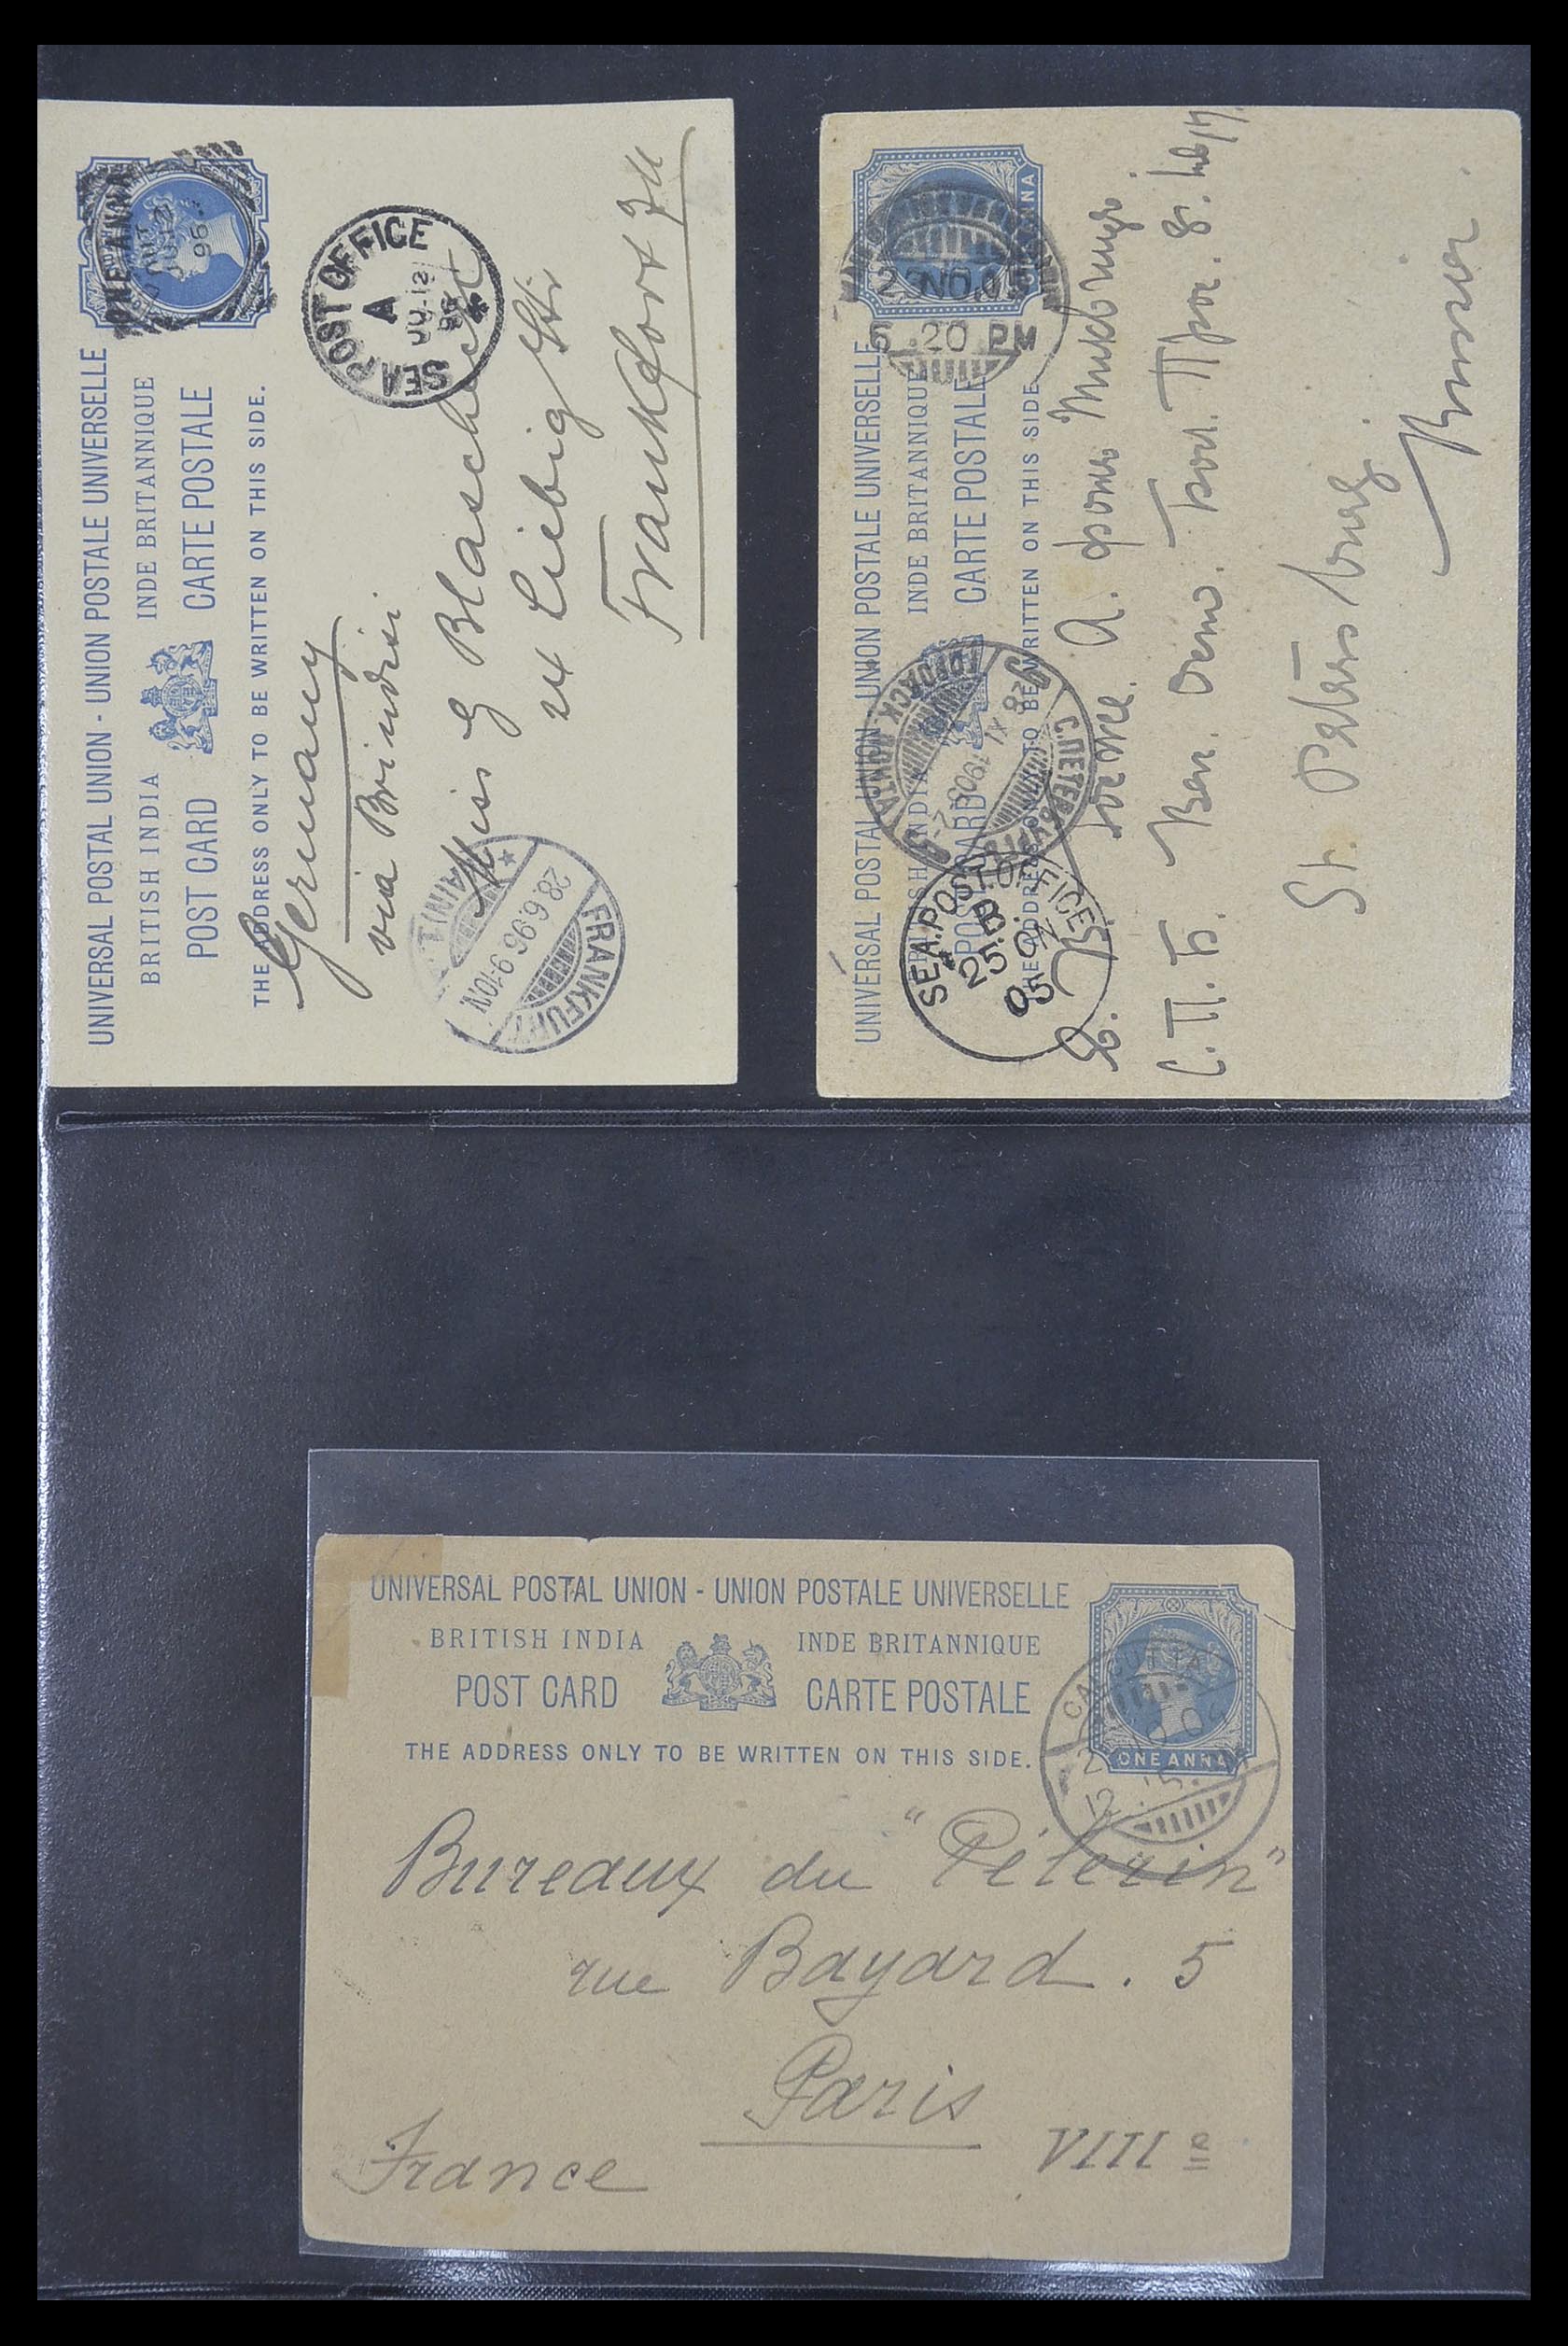 UNIVERSAL POSTAL UNION - UNION POSTALE UNIVERSELLE
BRITISH INDIA INDE BRITANNIQUE
POST CARD CARTE POSTALE
THE ADDRESS ONLY TO BE WRITTEN ON THIS SIDE.
ONE ANNA
SEA POST OFFICE
A
JU-12
96
Germany
via Brindisi
Miss G Blascheck
24 Liebig Str
Frankfort
FRANKFURT
(MAIN)
28.6.96.9-10N.
UNIVERSAL POSTAL UNION - UNION POSTALE UNIVERSELLE
BRITISH INDIA INDE BRITANNIQUE
POST CARD CARTE POSTALE
THE ADDRESS ONLY TO BE WRITTEN ON THIS SIDE
ONE ANNA
5.20 PM
С.ПЕТЕРБУРГЪ
ГОРОДСК. ПОЧТА
SEA POST OFFICE
B
А. фонъ
С. П. Б.
St. Petersburg.
UNIVERSAL POSTAL UNION - UNION POSTALE UNIVERSELLE
BRITISH INDIA INDE BRITANNIQUE
POST CARD CARTE POSTALE
THE ADDRESS ONLY TO BE WRITTEN ON THIS SIDE.
ONE ANNA
CALCUTTA
Bureaux du "Pélerin"
rue Bayard. 5
Paris
France VIIIe